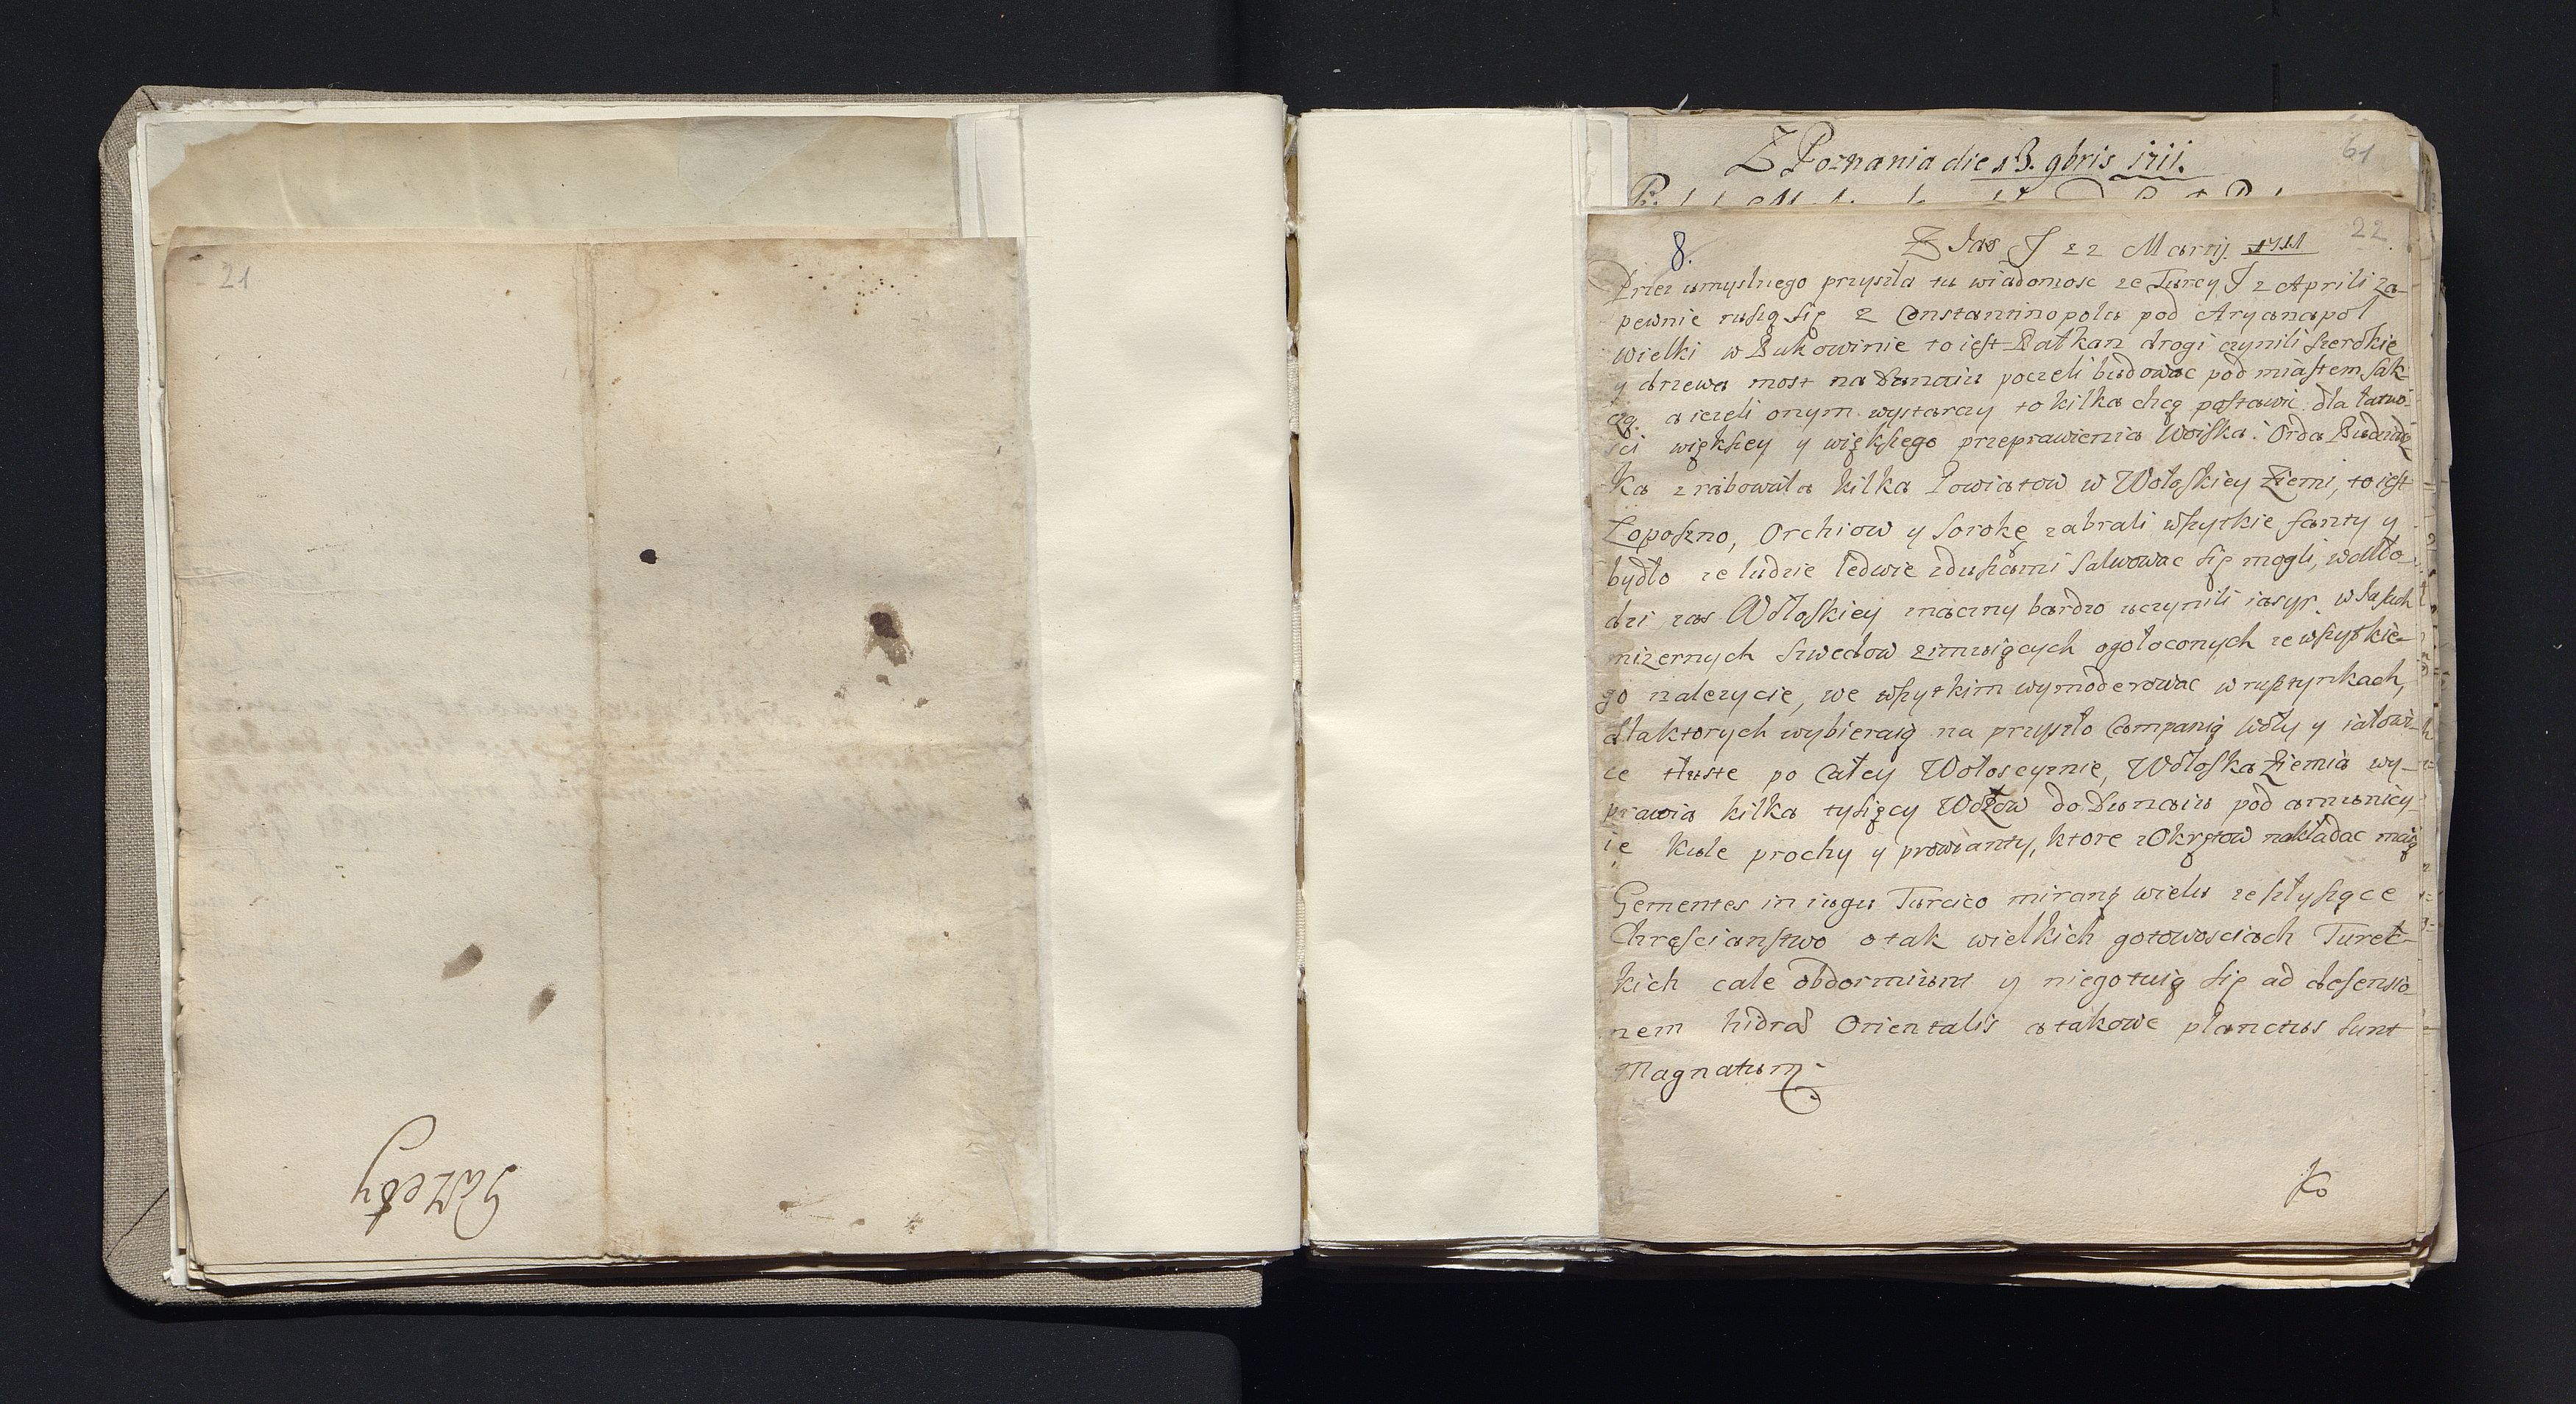 21
Gazety
Z Poznania die 13. 9bris 1711.
61
22
8.
Z Jas J 22 Martij 1711
Przez umyslnego przyszła tu wiadomosc ze Turcy J 2 Aprili za-
pewnie ruszą się z Constantinopolu pod Aryanapol
wielki w Bukowinie to iest Bałkan drogi czynili szerokie
y drzewa most na Dunaiu poczeli budowac pod miastem Sak
czą. a iezeli onym wystarczy to kilka chcą postawic dla
sci większey y większego przeprawienia Woiska. Orda Budziac
ka zrabowała kilka Powiatow w Wołoskiey Ziemi, to iest
Łoposzno, Orchiow y Sorokę zabrali wszytkie fanty y
bydło ze ludzie ledwie zduszami salwowac się mogli, w
dzi zas Wołoskiey znaczny bardzo uczynili iasyr. w Jasach
mizernych Szwedow zimuiących ogołoconych ze wszytkie
go nalezycie, we wszytkim wymoderowac w rysztynkach,
dla ktorych wybieraią na przyszło Campanią woły y iałowi-
ce tłuste po całey Wołosczyznie, Wołoska Ziemia wy-
prawia kilka tysięcy Wozow do Dunaiu pod amunicy-
ie kule prochy y prowianty, ktore z Okrętow nakładac maią
Gementes in iugo Turcico mirant wielu ze słysząc
Chrescianstwo o tak wielkich gotowosciach Turec-
kich cale obdormiunt y niegotuią się ad defensio-
nem hidra Orientalis a takowe planctus sunt
Magnatum.